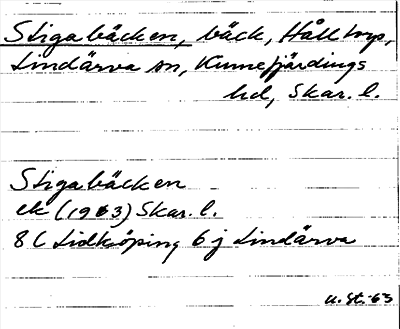 Stigabäcken, bäck, Hålltorp,
Lindärva sn, Kinnefjärdings
hd, Skar. l.
Stigabäcken
ek (1963) Skar. l.
8 C Lidköping 6 j Lindärva
u. St. 63